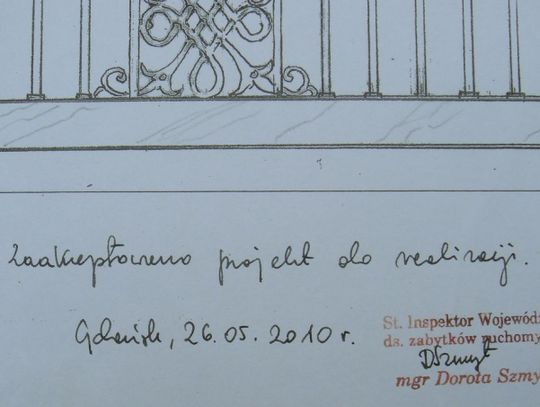 Zaakceptowano projekt do realizacji.
Gdańsk, 26.05.2010 r.
St. Inspektor Wojewód
ds. zabytków ruchomy
DSzmyt
mgr Dorota Szmy